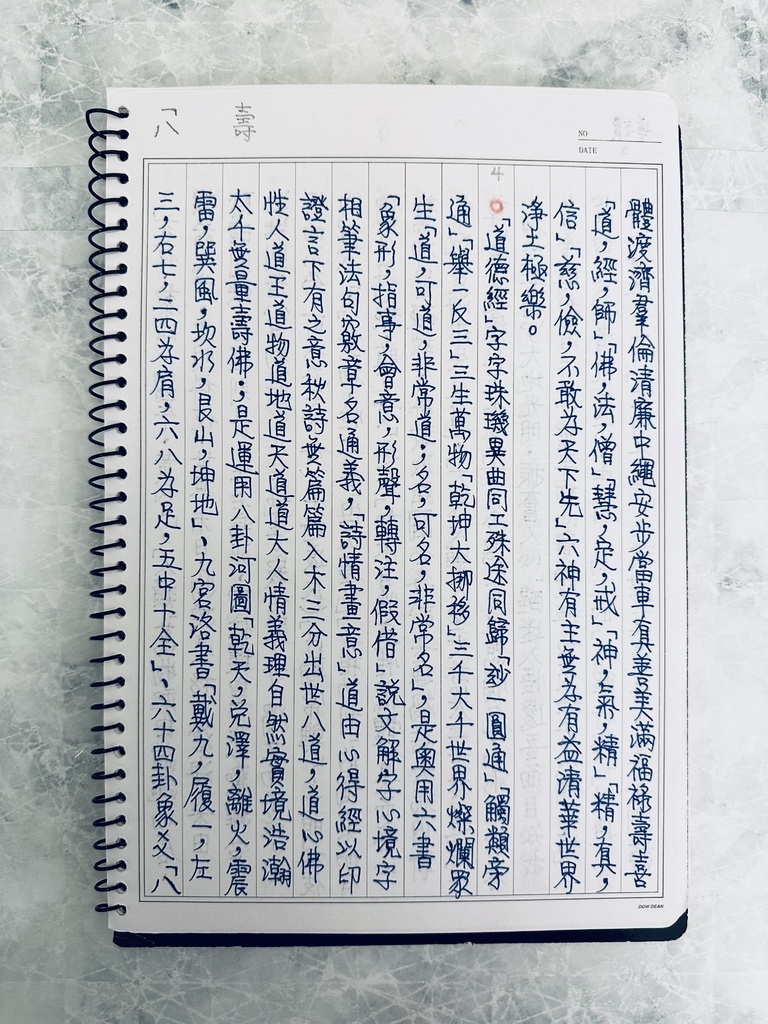 「八
壽
NO
DATE
4
體渡濟羣倫清廉中繩安步當車真善美滿福祿壽喜
「道，經，師」「佛，法，僧」「慧，定，戒」「神，氣，精」「精，真，
信」「慈，儉，不敢為天下先」六神有主無為有益清華世界
淨土極樂。
「道德經」字字珠璣異曲同工殊途同歸「玅一圓通」「觸類旁
通」「舉一反三」三生萬物「乾坤大挪移」三千大千世界燦爛眾
生「道，可道，非常道；名，可名，非常名」，是奧用六書
「象形，指事，會意，形聲，轉注，假借」說文解字心境字
相筆法句竅章名通義，「詩情畫意」道由心得經以印
證言下有之意秋詩無篇篇入木三分出世八道，道心佛
性人道王道物道地道天道道大人情義理自然實境浩瀚
太千無量壽佛；是運用八卦河圖「乾天，兌澤，離火，震
雷，巽風，坎水，艮山，坤地」、九宮洛書「戴九，履一，左
三，右七，二四為肩，六八為足，五中十全」、六十四卦象爻「八
DOW DEAN